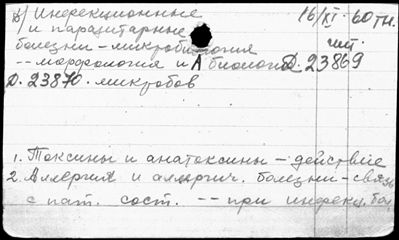 в) Инфекционные 16/XI-60 тп.
и паразитарные
болезни - микробиология чит.
-- морфология и биология Д. 23869
Д. 23870. микробов
1. Токсины и анатоксины - действие
2. Аллергия и аллергич. болезни - связь
с пат. сост. -- при инфекц. бол